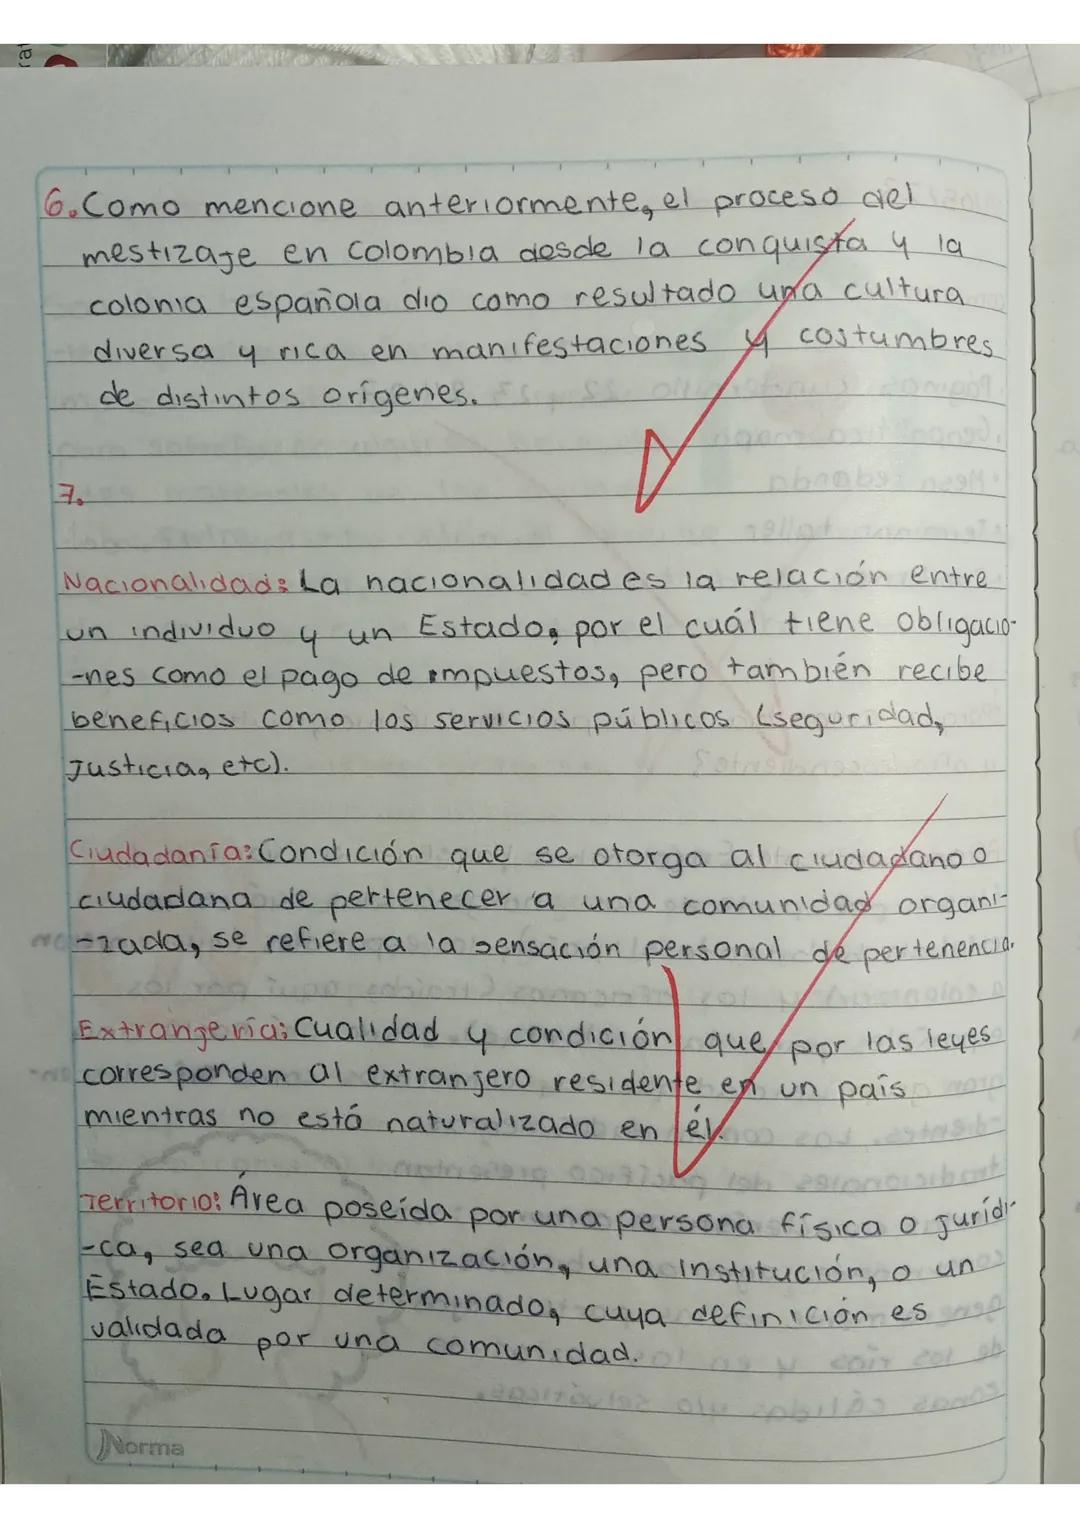 6. Como mencione anteriormente, el proceso del
mestizaje en Colombia desde la conquista y la
colonia española dio como resultado una cultura
diversa y rica en manifestaciones y costumbres
de distintos orígenes.
7.
Nacionalidad: La nacionalidad es la relación entre
un individuo y un Estado, por el cuál tiene obligacio-
-nes como el pago de impuestos, pero también recibe
beneficios como los servicios públicos (seguridad,
Justicia, etc).
Ciudadanía: Condición que se otorga al ciudadano o
ciudadana de pertenecer a una comunidad organi-
-zada, se refiere a la sensación personal de pertenencia.
Extranjería: Cualidad y condición que por las leyes
corresponden al extranjero residente en un país
mientras no está naturalizado en él.
Territorio: Área poseída por una persona física o jurídi-
-ca, sea una organización, una institución, o un
Estado. Lugar determinado, cuya definición es
validada por una comunidad.
Norma